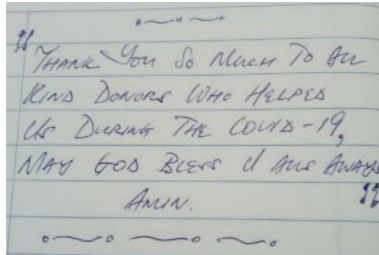 "Thank You So Much To All
Kind Donors Who Helped
Us During The COVID-19,
May God Bless U All Always
Amin."